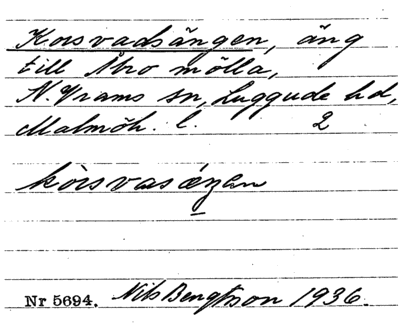 Korsvadsängen, äng
till Åbro mölla,
N. Vrams sn, Luggude hd,
Malmöh. l. 2
kòrsvasǽŋen
Nr 5694. Nils Bengtsson 1936.